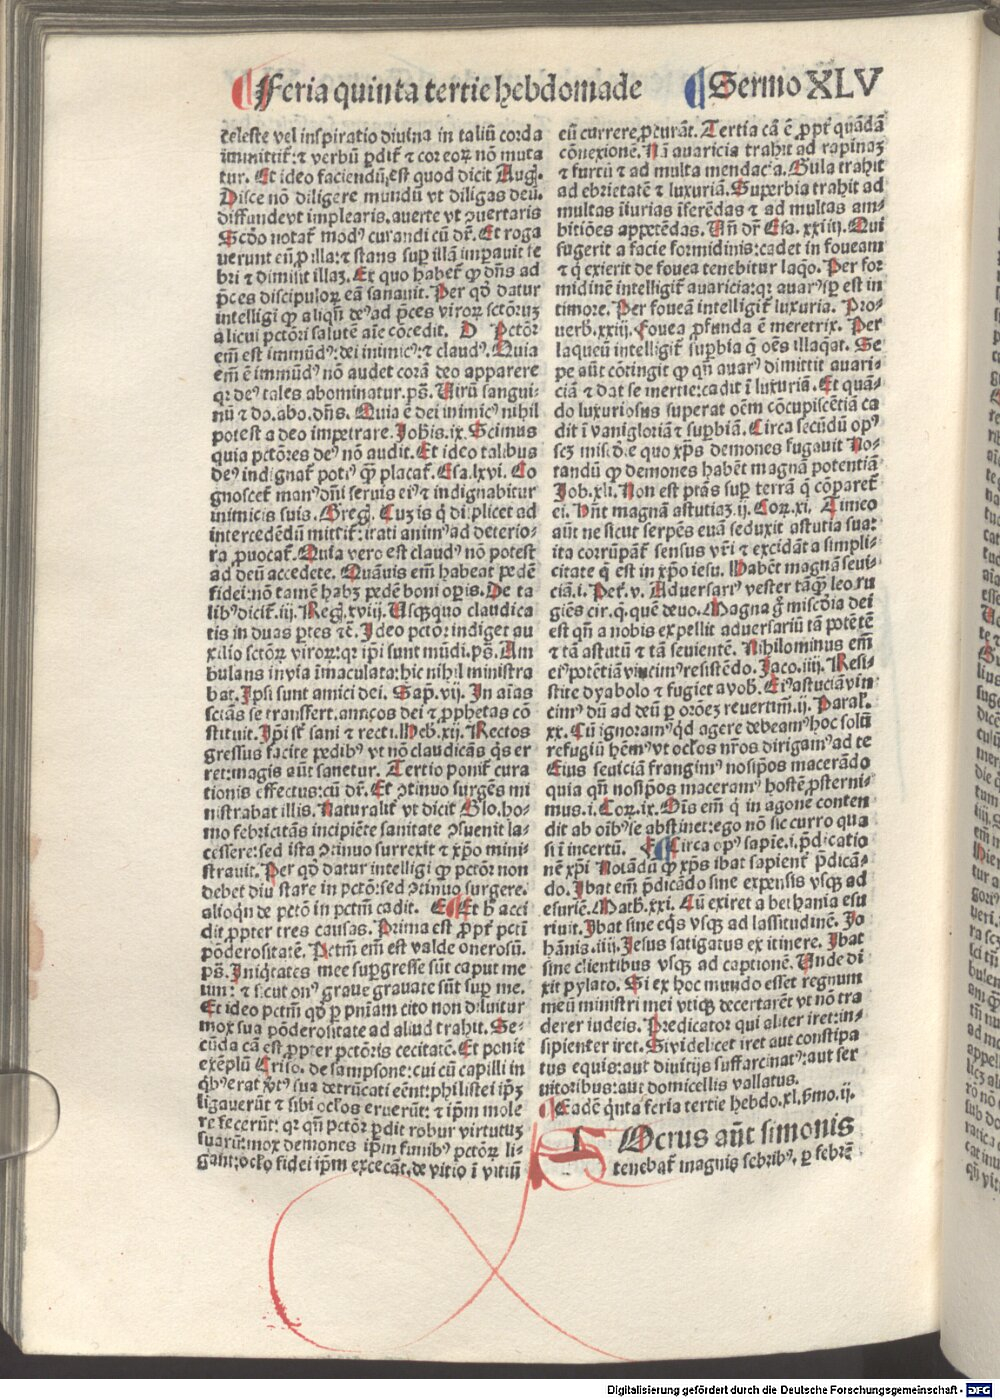 Feria quinta tertie hebdomade Sermo XLV
celeste vel inspiratio diuina in taliũ corda
immittit̃: ⁊ verbũ ꝑdit̃ ⁊ cor eoꝝ nõ muta
tur. Et ideo faciendũ est quod dicit Augꝰ.
Disce nõ diligere mundũ vt diligas deũ.
diffundevt implearis. auerte vt ꝯuertaris
Scd̃o notat̃ modꝰ curandi cũ dr̃. Et roga
uerunt eũ ꝓ illa: ⁊ stans suꝑ illã imꝑauit fe
bri ⁊ dimisit illaȝ. Ex quo habet̃ ꝙ dñs ad
p̃ces discipuloꝝ eã sanauit. Per qð datur
intelligi ꝙ aliqñ deꝰ ad p̃ces viroꝝ sctõꝝ
alicui pctõri salutẽ aĩe cõcedit. D Pctõr
em̃ est immũdꝰ: dei inimicꝰ: ⁊ claudꝰ. Quia
em̃ ẽ immũdꝰ nõ audet corã deo apparere
qꝛ deꝰ tales abominatur. ps̃. Virũ sangui
nũ ⁊ do. abo. dñs. Quia ẽ dei inimicꝰ nihil
potest a deo impetrare. Joh̃is. ix. Scimus
quia pctõres deꝰ nõ audit. Et ideo talibus
deꝰ indignat̃ potiꝰ q̃ȝ placat̃. Esa. lxvi. Co
gnoscet̃ manꝰ dñi seruis eiꝰ ⁊ indignabitur
inimicis suis. Gregꝰ. Cuȝ is q̇ displicet ad
intercedẽdũ mittit̃: irati animꝰ ad deterio-
ra ꝓuocat̃. Quia vero est claudꝰ nõ potest
ad deũ accedete. Quãuis em̃ habeat pedẽ
fidei: nõ tamẽ habȝ pedẽ boni oꝑis. De ta
libꝰ dicit̃. iij. Reg̃. xviij. Vsq̃quo claudica
tis in duas ꝑtes ⁊c̃. Jdeo pctõr indiget au
xilio sctõꝝ viroꝝ: qꝛ ip̃i sunt mũdi. ps̃. Am
bulans in via ĩmaculata: hic nihil ministra
bat. Jpsi sunt amici dei. Sap̃. vij. Jn aĩas
sctãs se transfert. amicos dei ⁊ ꝓphetas cõ
stituit. Jp̃i st̃ sani ⁊ recti. Heb. xij. Rectos
gressus facite pedibꝰ vt nõ claudicãs q̇s er
ret: magis aũt sanetur. Tertio ponit̃ cura
tionis effectus: cũ dr̃. Et ꝯtinuo surgẽs mi
nistrabat illis. Naturalit̃ vt dicit Glo. ho-
mo febricitãs incipiẽte sanitate ꝯsueuit la-
cessere: sed ista ꝯtinuo surrexit ⁊ xp̃o mini-
strauit. Per qð datur intelligi ꝙ pctõr non
debet diu stare in pctõ: sed ꝯtinuo surgere.
alioqñ de pctõ in pctm̃ cadit. E Et h̃ acci
dit ꝓpter tres causas. Prima est ꝓpt̃ pcti
põderositatẽ. Pctm̃ em̃ est valde onerosũ.
ps̃. Jniq̇tates mee suꝑgresse sũt caput me
um: ⁊ sicut onꝰ graue grauate sũt suꝑ me.
Et ideo pctm̃ qð ꝑ pñiam cito non diluitur
mox sua põderositate ad aliud trahit. Se-
cũda cã est ꝓpter pctõris cecitatẽ. Et ponit
exẽplũ Criso. de sampsone: cui cũ capilli in
q̇bꝰ erat v̓tꝰ sua detrũcati eẽnt: philistei ip̃ȝ
ligauerũt ⁊ sibi ocl̃os eruerũt: ⁊ ip̃m mole
re fecerũt: qꝛ qñ pctõr ꝑdit robur virtutuȝ
suarũ: mox demones ip̃m funibꝰ pctõꝝ li-
gãnt: ocl̃o fidei ip̃m excecãt, de vitio ĩ vitiũ
eũ currere ꝓcurãt. Tertia cã ẽ ꝓpt̃ quãdã
cõnexionẽ. Nã auaricia trahit ad rapinaȝ
⁊ furtũ ⁊ ad multa mendacia. Gula trahit
ad ebrietatẽ ⁊ luxuriã. Superbia trahit ad
multas iĩurias ĩferẽdas ⁊ ad multas am-
bitiões appetẽdas. Vñ dr̃ Esa. xxiiij. Qui
fugerit a facie formidinis: cadet in foueam
⁊ q̇ exierit de fouea tenebitur laq̃o. Per for
midinẽ intelligit̃ auaricia: qꝛ auarꝰ sꝑ est in
timore. Per foueã intelligit̃ luxuria. Pro-
uerb. xxiij. Fouea ꝓfunda ẽ meretrix. Per
laqueũ intelligit̃ suꝑbia q̃ oẽs illaqat. Se
pe aũt cõtingit ꝙ qñ auarꝰ dimittit auari-
ciã ⁊ dat se inertie: cadit ĩ luxuriã. Et quã-
do luxuriosus superat oẽm cõcupiscẽtiã ca
dit ĩ vanigloriã ⁊ suꝑbiã. Circa secũdũ opꝰ
scȝ mĩsc̃die quo xp̃s demones fugauit No-
tandũ ꝙ demones habẽt magnã potentiã
Job. xli. Non est ptãs suꝑ terrã q̃ cõparet̃
ei. Hñt magnã astutiaȝ. ij. Coꝝ. xi. Timeo
aũt ne sicut serpẽs euã seduxit astutia sua:
ita corrũpãt̃ sensus vr̃i ⁊ excidãt a simpli-
citate q̃ est in xp̃o iesu. Habẽt magnã seui-
ciã. i. Pet̃. v. Aduersariꝰ vester tãq̃ȝ leo ru
giẽs cir. q̃. quẽ deuo. Magna g̃ miscd̃ia dei
est qñ a nobis expellit aduersariũ tã potẽtẽ
⁊ tã astutũ ⁊ tã seuientẽ. Nihilominus em̃
eiꝰ potẽtiã vincimꝰ resistẽdo. Jaco. iiij. Resi-
stite dyabolo ⁊ fugiet a vob̃. Eiꝰ astuciã vin
cimꝰ dũ ad deũ ꝑ orõeȝ reuertim̃. ij. Paral̃.
xx. Cũ ignoramꝰ qd̓ agere debeamꝰ hoc solũ
refugiũ hẽmꝰ vt ocl̃os nr̃os dirigamꝰ ad te
Eius seuiciã frangimꝰ nosip̃os macerãdo
quia qñ nosip̃os maceramꝰ hostẽ ꝓsterni-
mus. i. Coꝝ. ix. Oĩs em̃ q̇ in agone conten
dit ab oĩbꝰ se abstinet: ego nõ sic curro qua
si ĩ incertũ. F Circa opꝰ sapie. i. p̃dicatio
nẽ xp̃i Notãdũ ꝙ xp̃s ibat sapient̃ p̃dicã-
do. Jbat em̃ p̃dicãdo sine expensis vsq̃ ad
esuriẽ. Math̃. xxi. Cũ exiret a bethania esu
riuit. Jbat sine eq̇s vsq̃ ad lassitudinẽ. Jo
hãnis. iiij. Jesus fatigatus ex itinere. Jbat
sine clientibus vsq̃ ad captionẽ. Vnde di
xit pylato. Si ex hoc mundo esset regnum
meũ ministri mei vtiq̃ decertarẽt vt nõ tra
derer iudeis. Predicator qui aliter iret: in-
sipienter iret. Si videlicet iret aut constipa
tus equis: aut diuitijs suffarcinatꝰ: aut ser
uitoribus: aut domicellis vallatus.
Eadẽ q̇nta feria tertie hebdo. xl. ẞmo. ij.
SOcrus aũt simonis
tenebat̃ magnis febribꝰ. ꝑ febrẽ
Digitalisierung gefördert durch die Deutsche Forschungsgemeinschaft - DFG